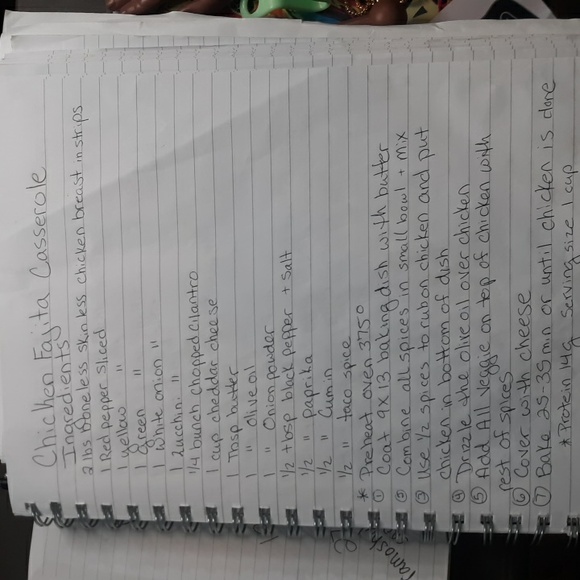 Chicken Fajita Casserole
Ingredients
2 lbs boneless skinless chicken breast in strips
1 Red pepper sliced
1 yellow "
1 green "
1 White onion "
1 Zucchini "
1/4 bunch chopped cilantro
1 cup cheddar cheese
1 Tbsp butter
1 " olive oil
1 " Onion powder
1/2 tbsp black pepper + salt
1/2 " Paprika
1/2 " Cumin
1/2 " taco spice
* Preheat oven 375°
① Coat 9x13 baking dish with butter
② Combine all spices in small bowl + mix
③ Use 1/2 spices to rub on chicken and put
chicken in bottom of dish
④ Drizzle the olive oil over chicken
⑤ Add All veggie on top of chicken with
rest of spices
⑥ Cover with cheese
⑦ Bake 25-35 min or until chicken is done
* Protein 14g Serving size 1 cup